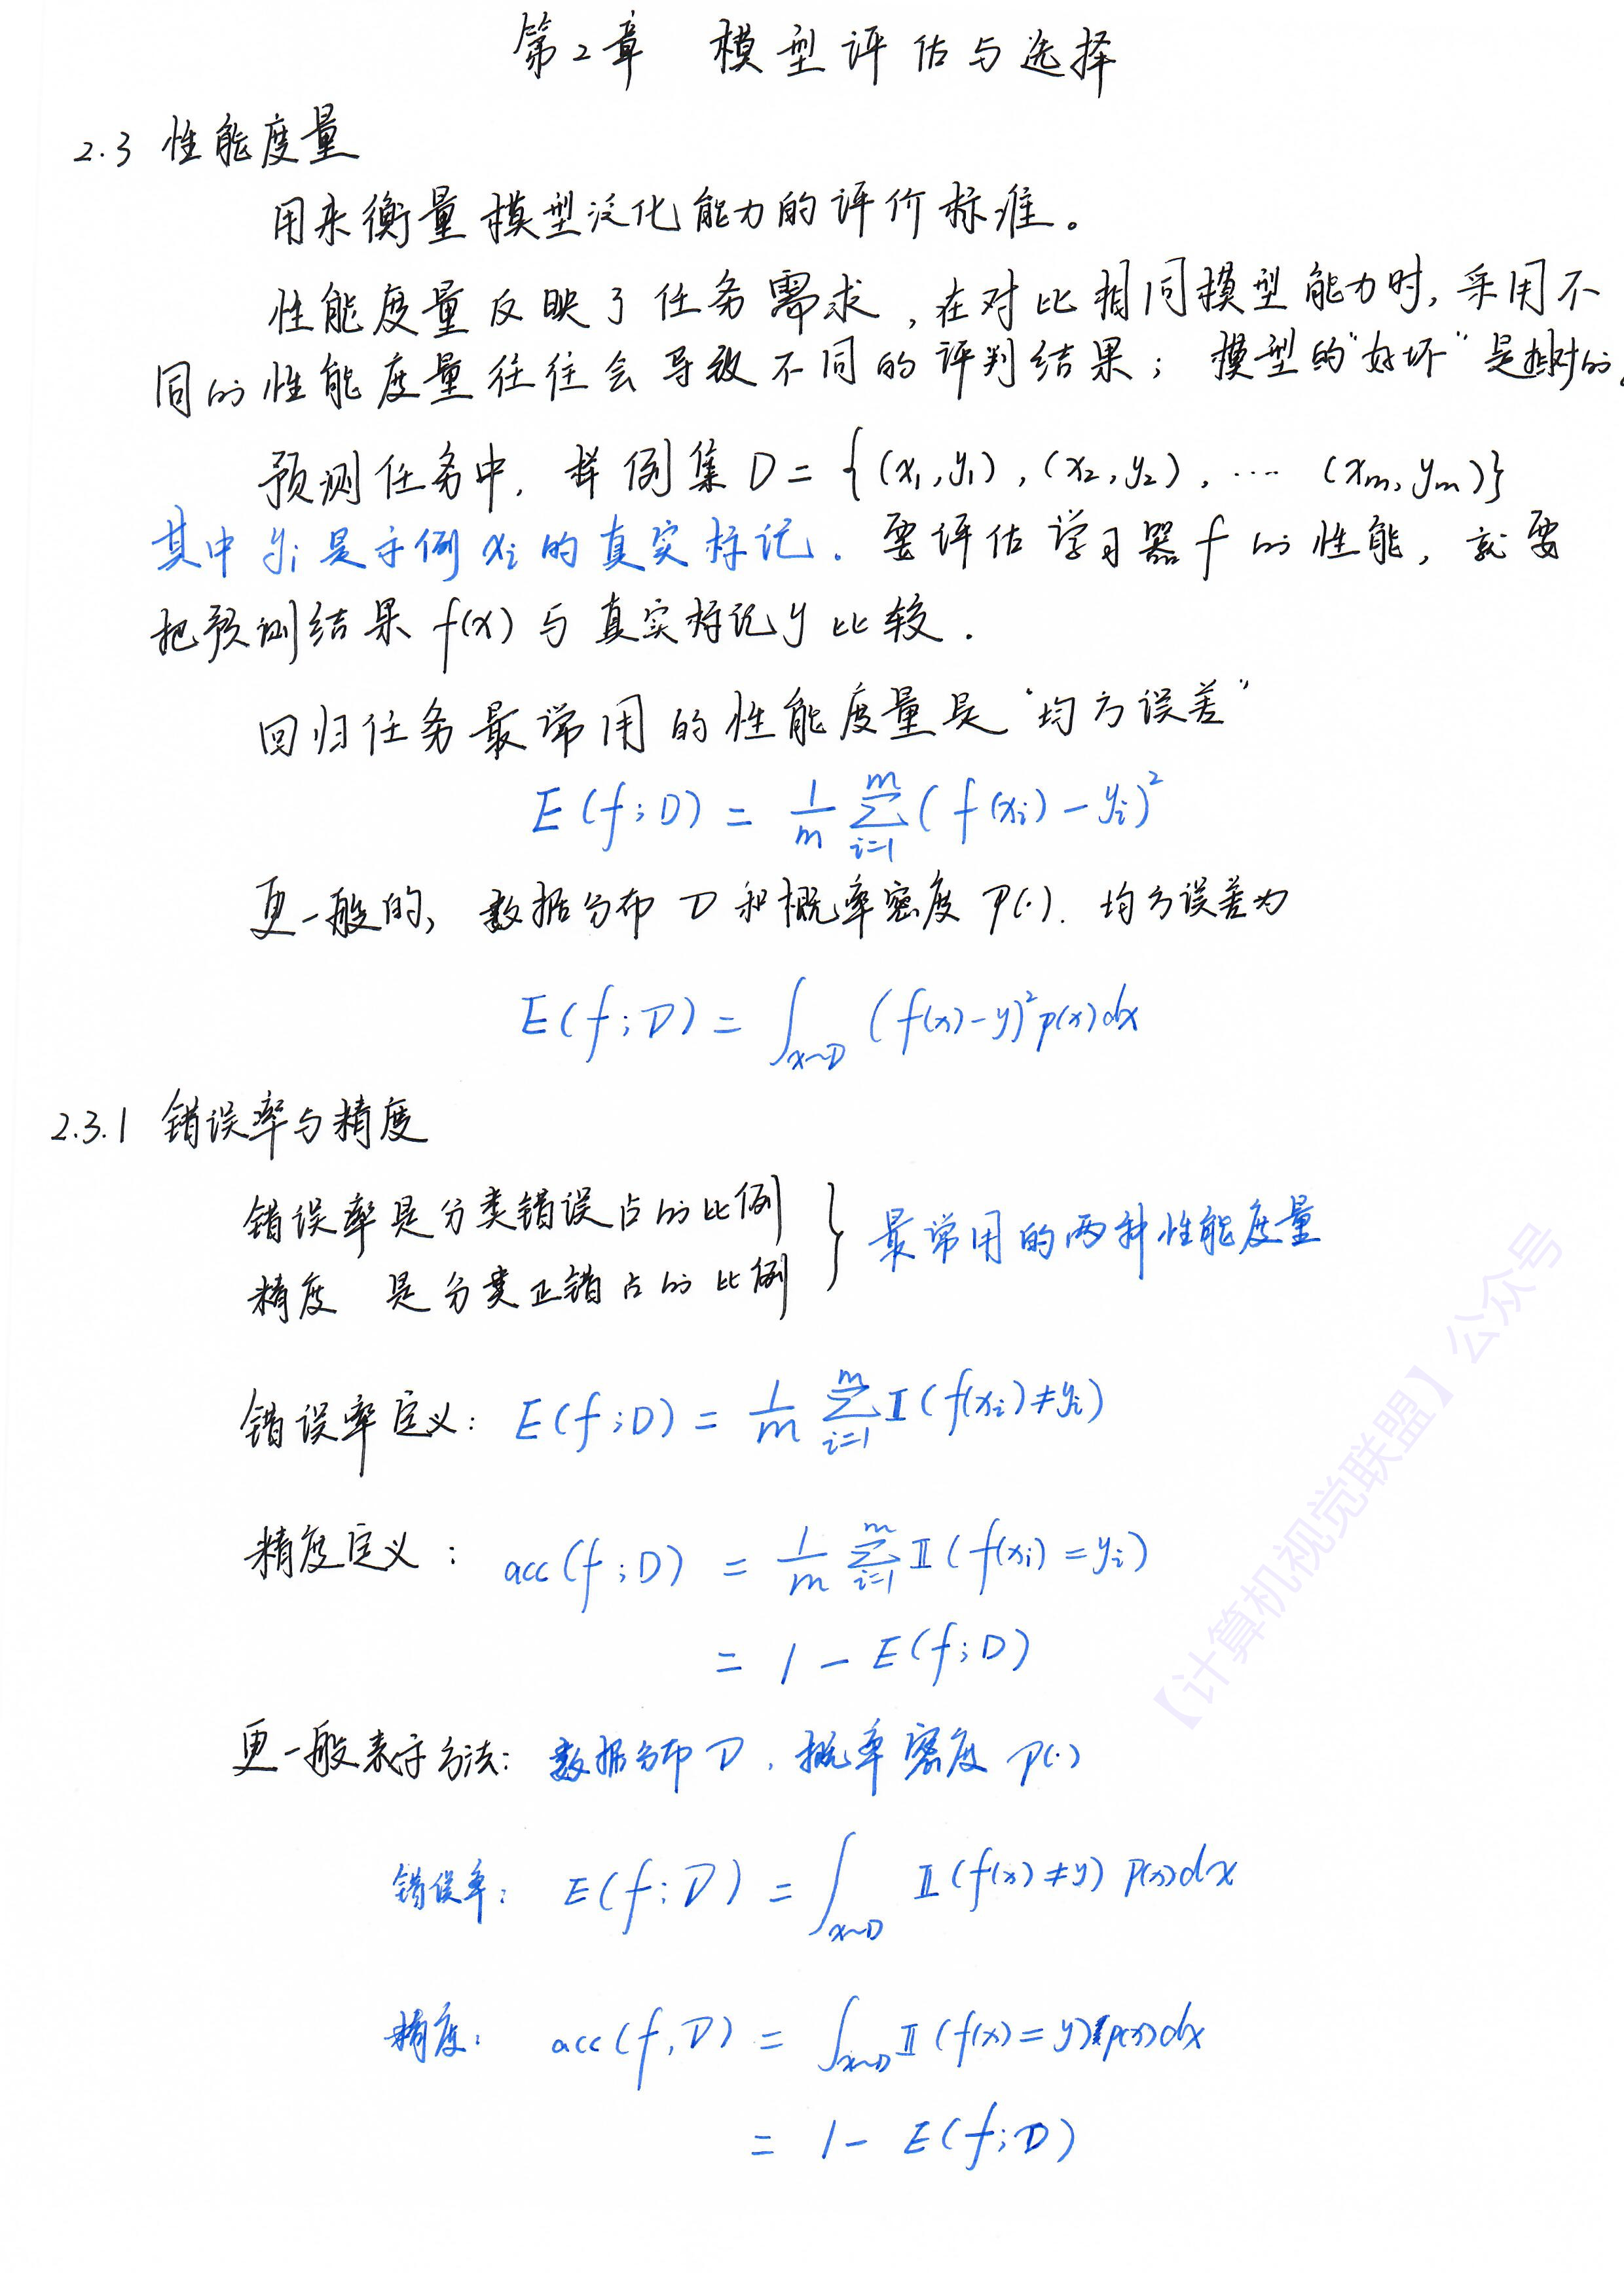 第2章 模型评估与选择
2.3 性能度量
用来衡量模型泛化能力的评价标准。
性能度量反映了任务需求,在对比相同模型能力时,采用不
同的性能度量往往会导致不同的评判结果;模型的"好坏"是相对的。
预测任务中,样例集 D = {(x₁,y₁),(x₂,y₂),… (xₘ,yₘ)}
其中 yᵢ 是示例 xᵢ 的真实标记. 要评估学习器 f 的性能,就要
把预测结果 f(x) 与真实标记 y 比较.
回归任务最常用的性能度量是"均方误差"
E(f;D) = 1/m ∑ᵢ₌₁ᵐ (f(xᵢ) − yᵢ)²
更一般的, 数据分布 𝒟 和概率密度 P(·). 均方误差为
E(f;𝒟) = ∫ₓ~𝒟 (f(x)−y)² p(x)dx
2.3.1 错误率与精度
错误率是分类错误占的比例 } 最常用的两种性能度量
精度 是分类正错占的比例
错误率定义: E(f;D) = 1/m ∑ᵢ₌₁ᵐ 𝕀(f(xᵢ)≠yᵢ)
精度定义: acc(f;D) = 1/m ∑ᵢ₌₁ᵐ 𝕀(f(xᵢ)=yᵢ)
= 1 − E(f;D)
更一般表示方法: 数据分布 𝒟, 概率密度 P(·)
错误率: E(f;𝒟) = ∫ₓ~𝒟 𝕀(f(x)≠y) P(x)dx
精度: acc(f,𝒟) = ∫ₓ~𝒟 𝕀(f(x)=y) p(x)dx
= 1 − E(f;𝒟)
【计算机视觉联盟】公众号